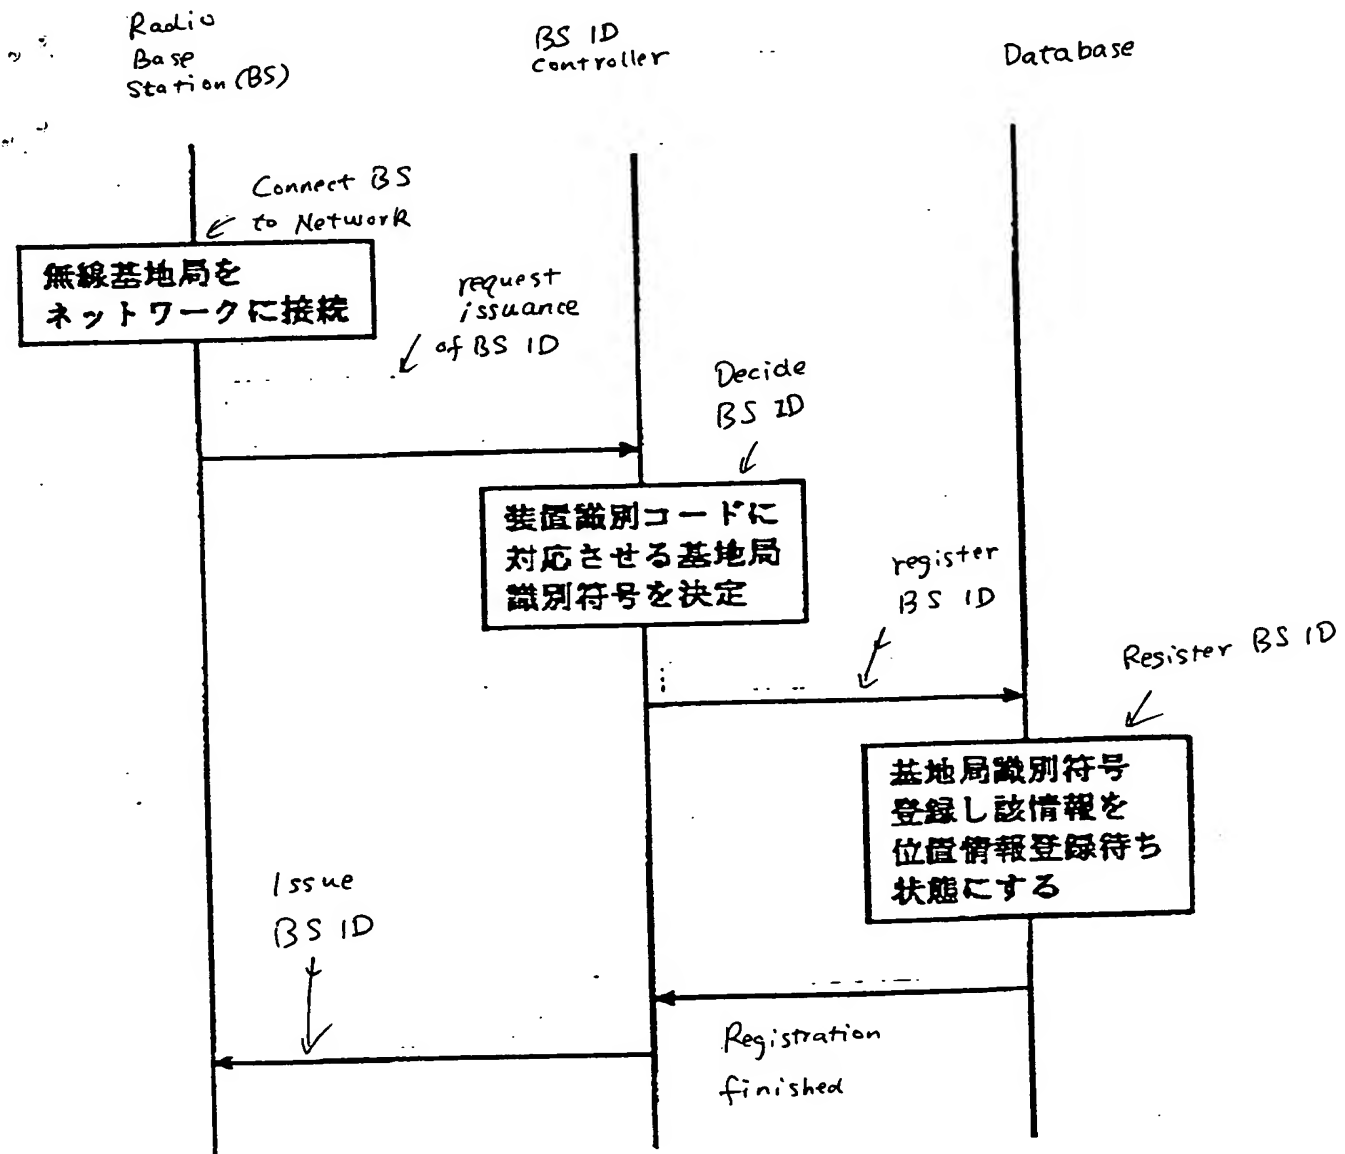 Radio
Base
Station (BS)
BS ID
Controller
Database
Connect BS
to Network
無線基地局を
ネットワークに接続
request
issuance
of BS ID
Decide
BS ID
装置識別コードに
対応させる基地局
識別符号を決定
register
BS ID
Register BS ID
基地局識別符号
登録し該情報を
位置情報登録待ち
状態にする
Issue
BS ID
Registration
finished